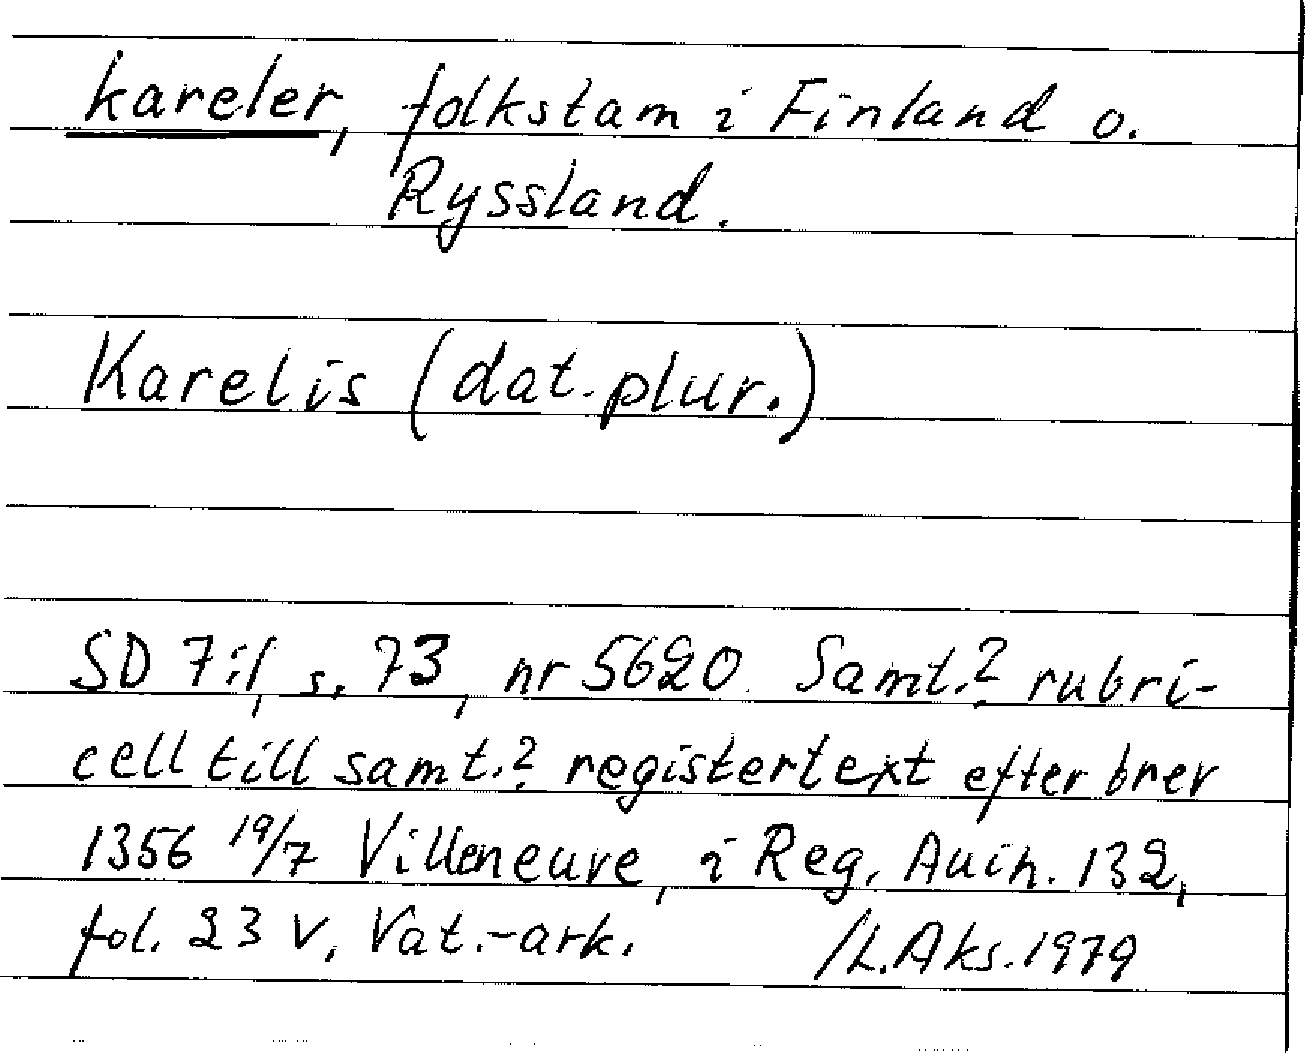 kareler, folkstam i Finland o.
Ryssland.
Karelis (dat. plur.)
SD 7:1, s. 73, nr 5620. Samt.? rubri-
cell till samt.? registertext efter brev
1356 19/7 Villeneuve, i Reg. Avin. 132,
fol. 23 v, Vat.-ark. /L. Aks. 1979